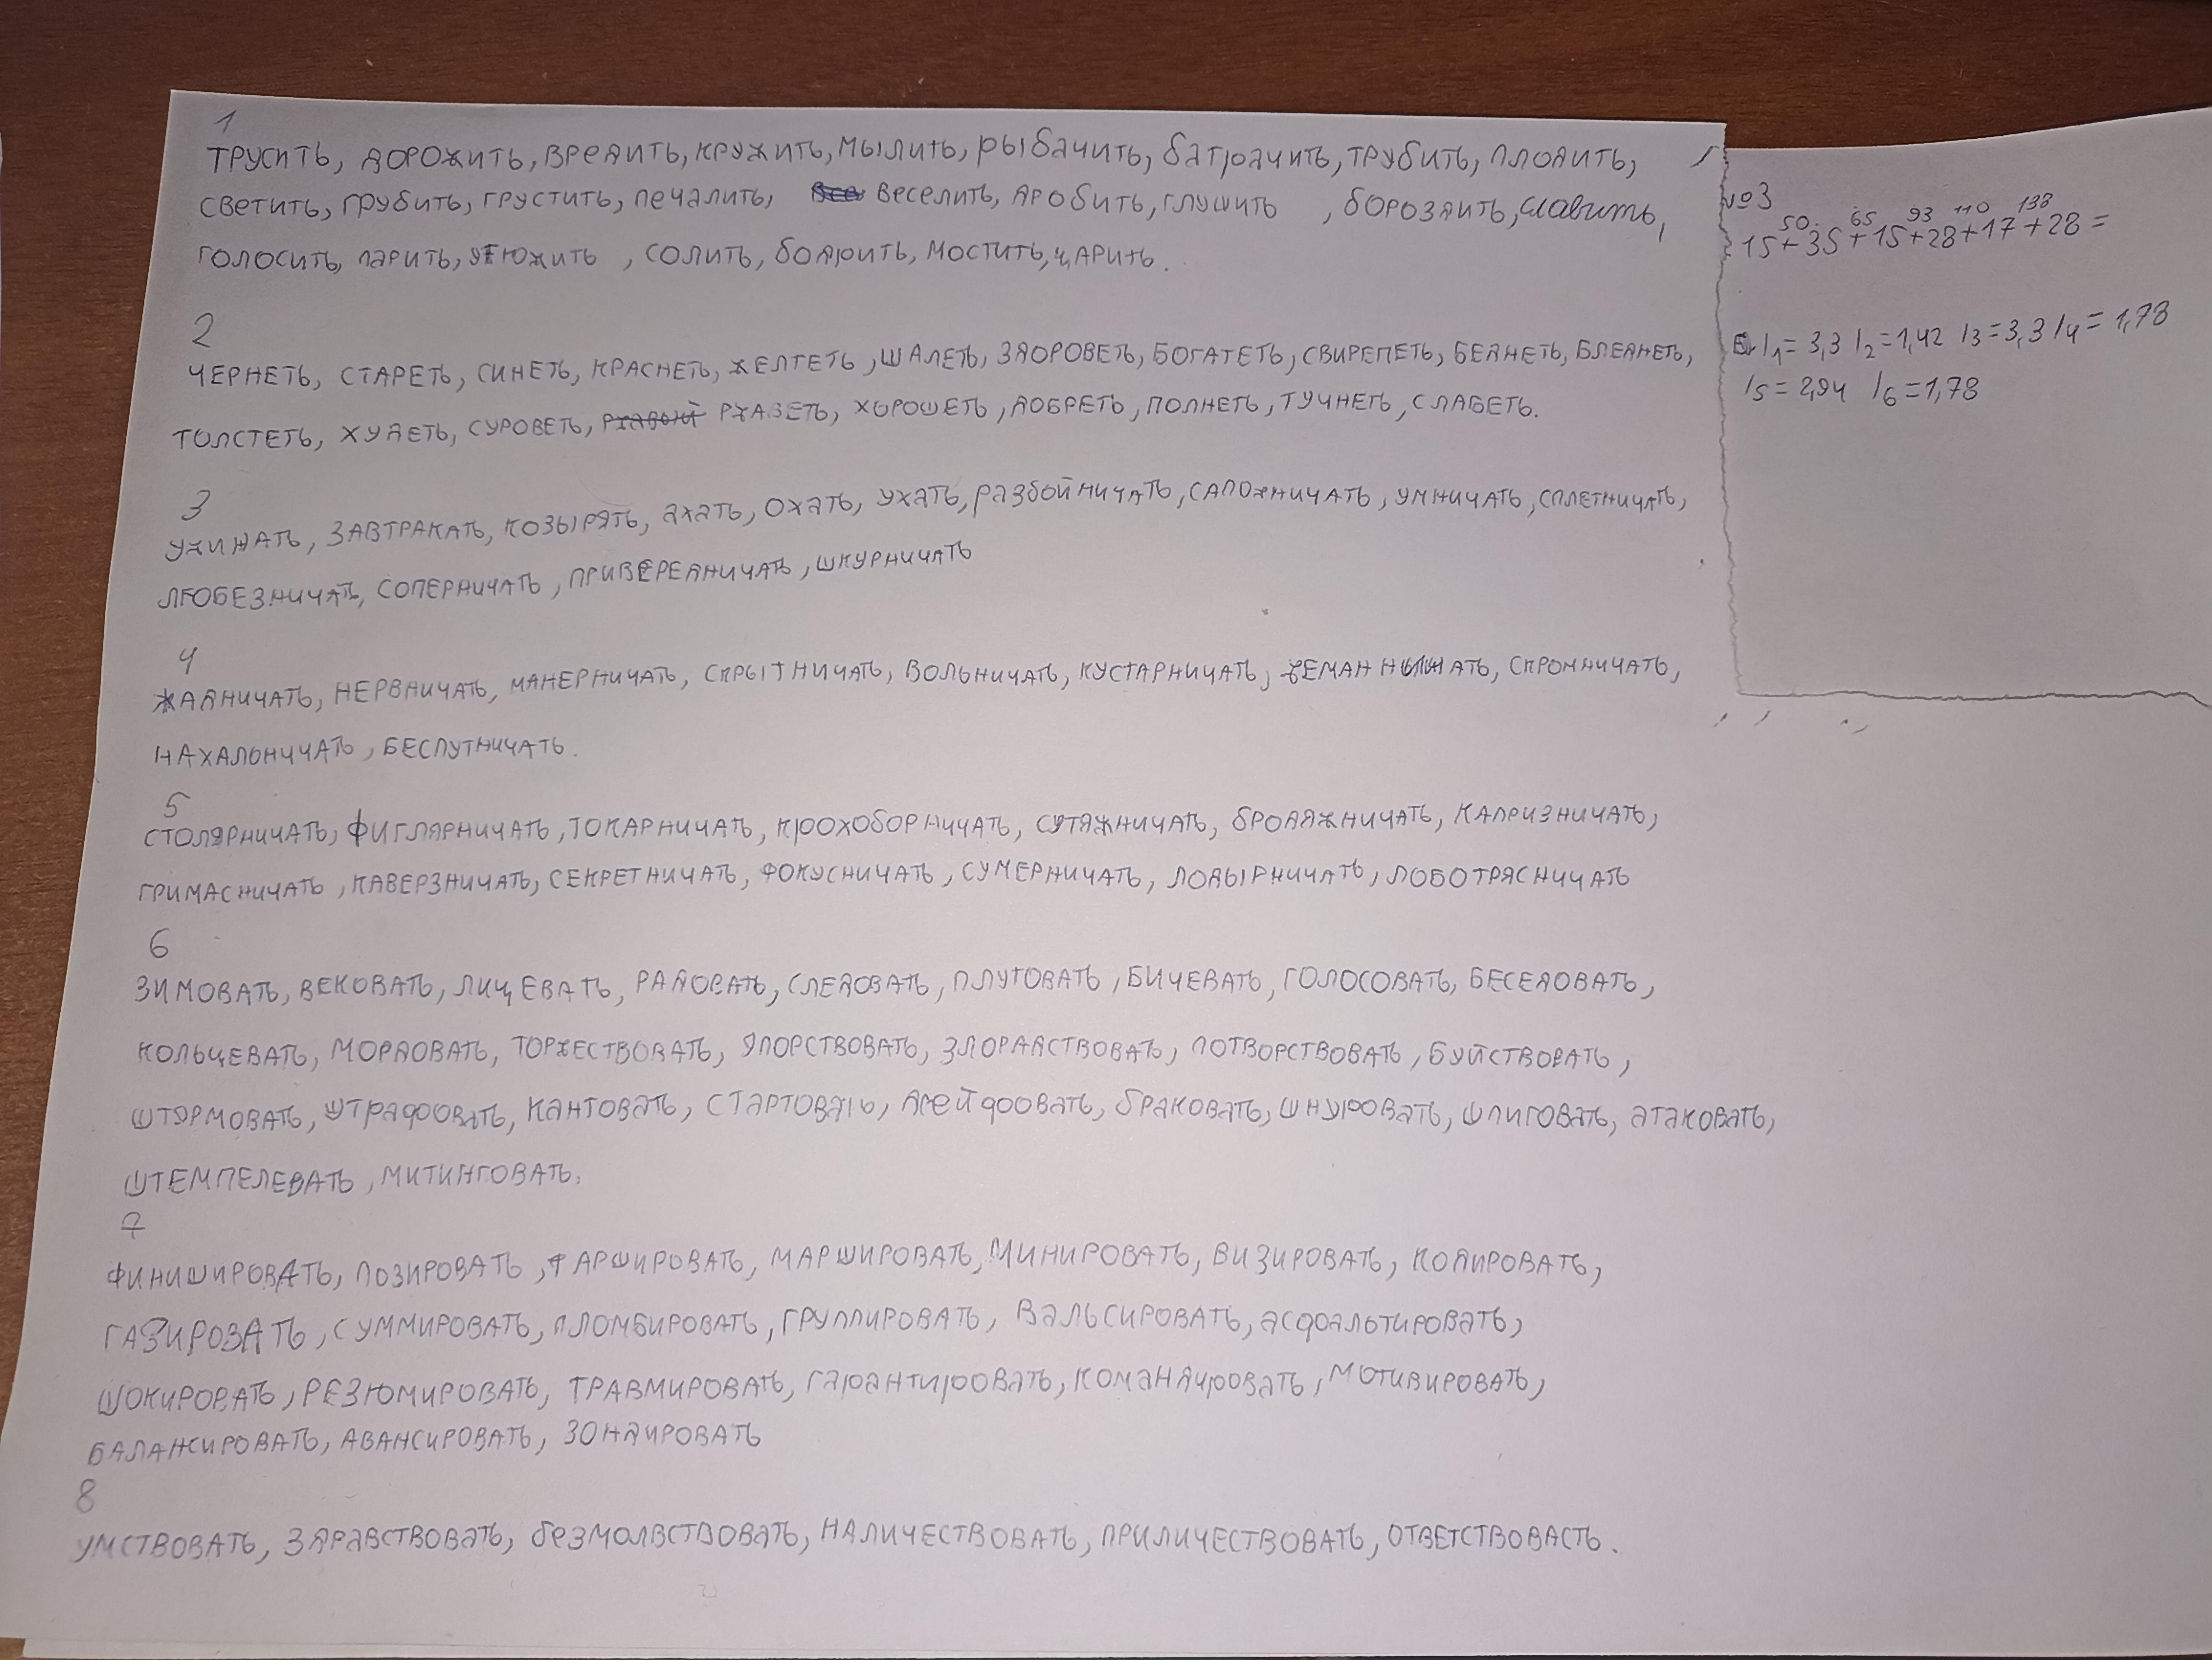 1
ТРУСИТЬ, ДОРОЖИТЬ, ВРЕДИТЬ, КРУЖИТЬ, МЫЛИТЬ, рыбачить, батрачить, ТРУБИТЬ, ПЛОДИТЬ,
СВЕТИТЬ, ГРУБИТЬ, ГРУСТИТЬ, ПЕЧАЛИТЬ, ВЕСЕЛИТЬ, ДРОБИТЬ, ГЛУШИТЬ , БОРОЗДИТЬ, славить,
ГОЛОСИТЬ, ПАРИТЬ, УТЮЖИТЬ , СОЛИТЬ, БОДРИТЬ, МОСТИТЬ, ЦАРИТЬ.
2
ЧЕРНЕТЬ, СТАРЕТЬ, СИНЕТЬ, КРАСНЕТЬ, ЖЕЛТЕТЬ, ШАЛЕТЬ, ЗДОРОВЕТЬ, БОГАТЕТЬ, СВИРЕПЕТЬ, БЕДНЕТЬ, БЛЕДНЕТЬ,
ТОЛСТЕТЬ, ХУДЕТЬ, СУРОВЕТЬ, РЖАВЫЙ РЖАВЕТЬ, ХОРОШЕТЬ, ДОБРЕТЬ, ПОЛНЕТЬ, ТУЧНЕТЬ, СЛАБЕТЬ.
3
УЖИНАТЬ, ЗАВТРАКАТЬ, КОЗЫРЯТЬ, АХАТЬ, ОХАТЬ, УХАТЬ, разбойничАТЬ, САПОЖНИЧАТЬ, УМНИЧАТЬ, СПЛЕТНИЧАТЬ,
ЛЮБЕЗНИЧАТЬ, СОПЕРНИЧАТЬ, ПРИВЕРЕДНИЧАТЬ, ШКУРНИЧАТЬ
4
ЖАДНИЧАТЬ, НЕРВНИЧАТЬ, МАНЕРНИЧАТЬ, СКРЫТНИЧАТЬ, ВОЛЬНИЧАТЬ, КУСТАРНИЧАТЬ, СКРОМНИЧАТЬ,
НАХАЛЬНИЧАТЬ, БЕСПУТНИЧАТЬ.
5
СТОЛЯРНИЧАТЬ, ФИГЛЯРНИЧАТЬ, ТОКАРНИЧАТЬ, КРОХОБОРНИЧАТЬ, СУТЯЖНИЧАТЬ, БРОДЯЖНИЧАТЬ, КАПРИЗНИЧАТЬ,
ГРИМАСНИЧАТЬ, КАВЕРЗНИЧАТЬ, СЕКРЕТНИЧАТЬ, ФОКУСНИЧАТЬ, СУМЕРНИЧАТЬ, ЛОДЫРНИЧАТЬ, ЛОБОТРЯСНИЧАТЬ
6
ЗИМОВАТЬ, ВЕКОВАТЬ, ЛИЦЕВАТЬ, РАДОВАТЬ, СЛЕДОВАТЬ, ПЛУТОВАТЬ, БИЧЕВАТЬ, ГОЛОСОВАТЬ, БЕСЕДОВАТЬ,
КОЛЬЦЕВАТЬ, МОРДОВАТЬ, ТОРЖЕСТВОВАТЬ, УПОРСТВОВАТЬ, ЗЛОРАДСТВОВАТЬ, ПОТВОРСТВОВАТЬ, БУЙСТВОВАТЬ,
ШТОРМОВАТЬ, ШТРАФОВАТЬ, КАНТОВАТЬ, СТАРТОВАТЬ, ДРЕЙФОВАТЬ, БРАКОВАТЬ, ШНУРОВАТЬ, ШПИГОВАТЬ, АТАКОВАТЬ,
ШТЕМПЕЛЕВАТЬ, МИТИНГОВАТЬ.
7
ФИНИШИРОВАТЬ, ПОЗИРОВАТЬ, ФАРШИРОВАТЬ, МАРШИРОВАТЬ, МИНИРОВАТЬ, ВИЗИРОВАТЬ, КОДИРОВАТЬ,
ГАЗИРОВАТЬ, СУММИРОВАТЬ, ПЛОМБИРОВАТЬ, ГРУППИРОВАТЬ, ВАЛЬСИРОВАТЬ, АСФАЛЬТИРОВАТЬ,
ШОКИРОВАТЬ, РЕЗЮМИРОВАТЬ, ТРАВМИРОВАТЬ, ГАРАНТИРОВАТЬ, КОМАНДИРОВАТЬ, МОТИВИРОВАТЬ,
БАЛАНСИРОВАТЬ, АВАНСИРОВАТЬ, ЗОНДИРОВАТЬ
8
УМСТВОВАТЬ, ЗДРАВСТВОВАТЬ, безмолвствовать, НАЛИЧЕСТВОВАТЬ, ПРИЛИЧЕСТВОВАТЬ, ОТВЕТСТВОВАСТЬ.
№3
50 65 93 110 138
15+35+15+28+17+28=
l1=3,3 l2=1,42 l3=3,3 l4=1,78
l5=2,94 l6=1,78